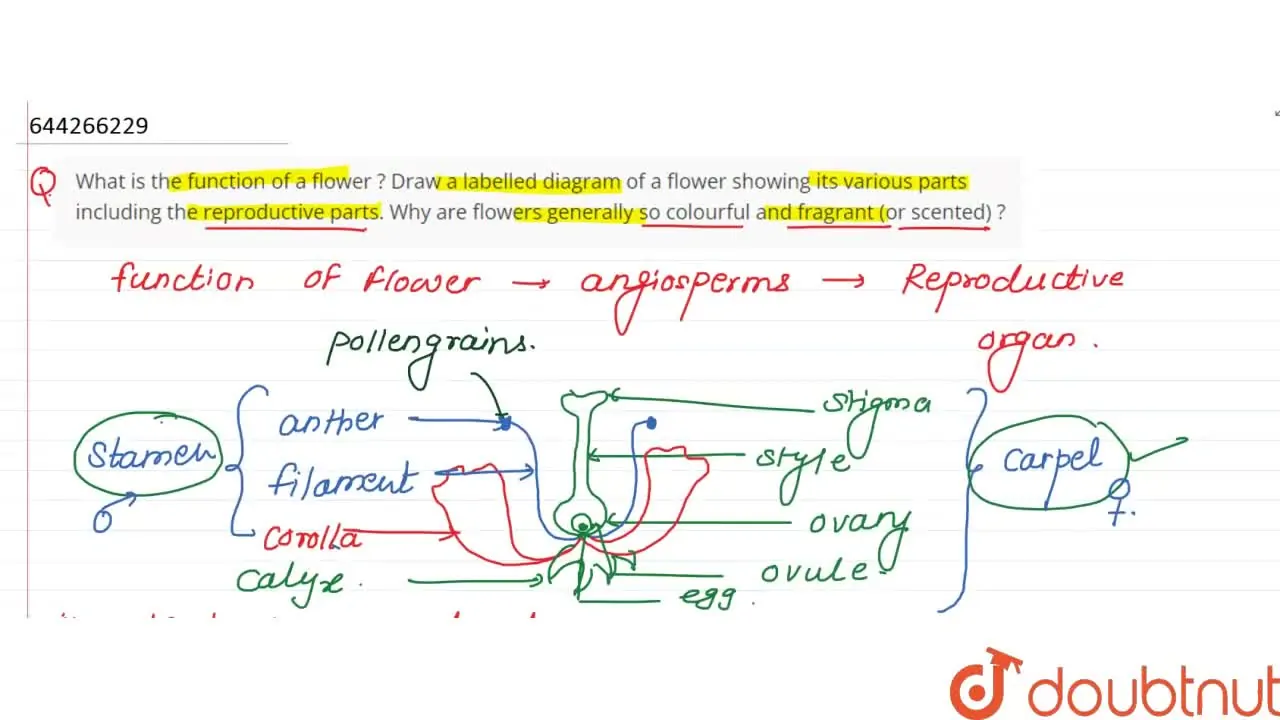 644266229
Q What is the function of a flower ? Draw a labelled diagram of a flower showing its various parts
including the reproductive parts. Why are flowers generally so colourful and fragrant (or scented) ?
function of flower → angiosperms → Reproductive
organ.
pollengrains.
stigma
anther
stamen
carpel
style
filament
corolla
ovary
calyx.
ovule
egg.
doubtnut